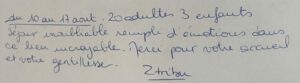 du 10 au 17 août : 20 adultes 3 enfants
Séjour inoubliable rempli d'émotions dans
ce lieu incroyable. Merci pour votre accueil
et votre gentillesse.